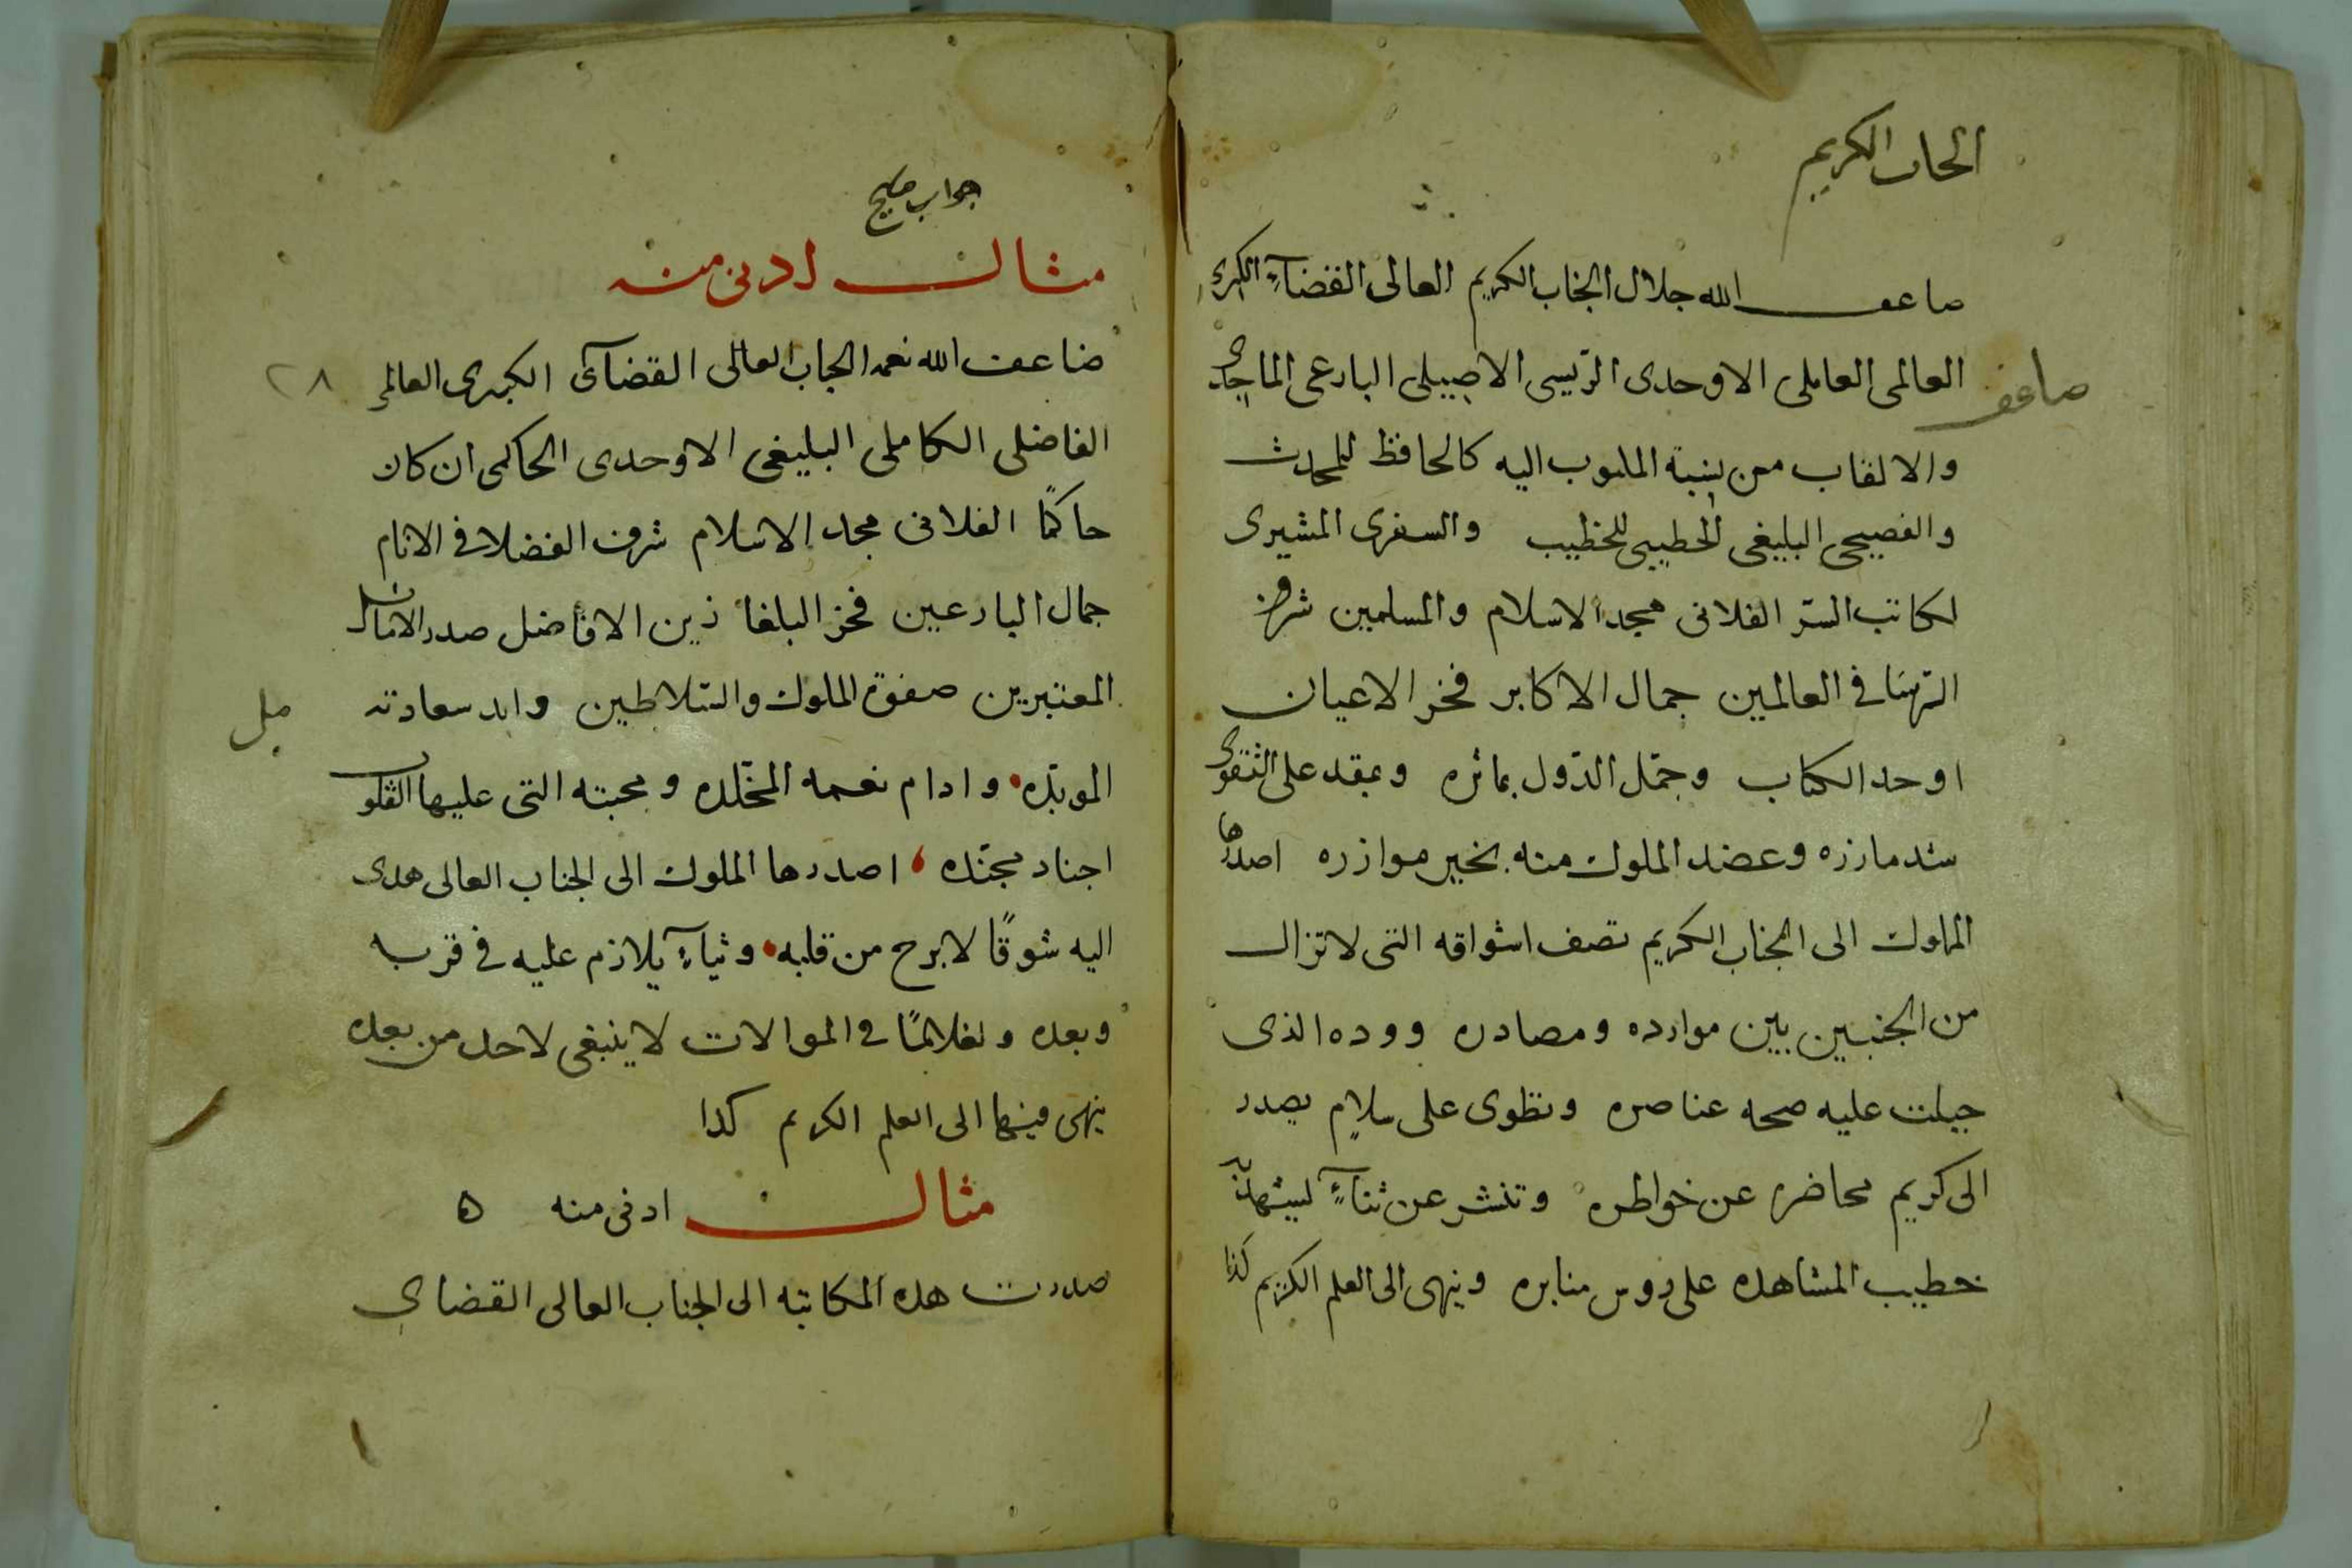 الجناب الكريم
ضاعف الله جلال الجناب الكريم العالى القضاءى الكبرى
العالمى العاملى الاوحدى الرئيسى الاصيلى البارعى الماجدى
ضاعف
والالقاب من نسبة المنسوب اليه كالحافظ للمحدث
والفصيحى البليغى الخطيبى للخطيب والسفرى المشيرى
لكاتب السر الفلانى مجد الاسلام والمسلمين شرف
الرؤسا فى العالمين جمال الاكابر فخر الاعيان
اوحد الكتاب وجمّل الدّول بماثره وعقد على التقوى
شد مازره وعضد الملوك منه بخير موازره اصدرها
المملوك الى الجناب الكريم تصف اشواقه التى لا تزال
من الجنبين بين موارده ومصادره ووده الذى
جبلت عليه صحه عناصره وتطوى على سلام يصدر
الى كريم محاضره عن خواطره وتنشر عن ثناءٍ ليشهد به
خطيب المشاهده على روس منابره وينهى الى العلم الكريم كذا
جواب مليح
مثال ادنى منه
ضاعف الله نعمه الجناب العالى القضآى الكبرى العالمى
٢٨
الفاضلى الكاملى البليغى الاوحدى الحاكمى ان كان
حاكمًا الفلانى مجد الاسلام شرف الفضلا فى الانام
جمال البارعين فخر البلغا زين الافاضل صدر الاماثل
المعتبرين صفوة الملوك والسّلاطين وابد سعادته
المويّده وادام نعمه المخلّده ومحبته التى عليها القلوب
اجناد مجنّده اصدرها المملوك الى الجناب العالى هدى
اليه شوقًا لا برح من قلبه وثناءً يلازم عليه فى قربه
وبعده فى الموالات لا ينبغى لاحد من بعده
ينهى فيها الى العلم الكريم كذا
مثال ادنى منه ٥
صدرت هذه المكاتبه الى الجناب العالى القضاى